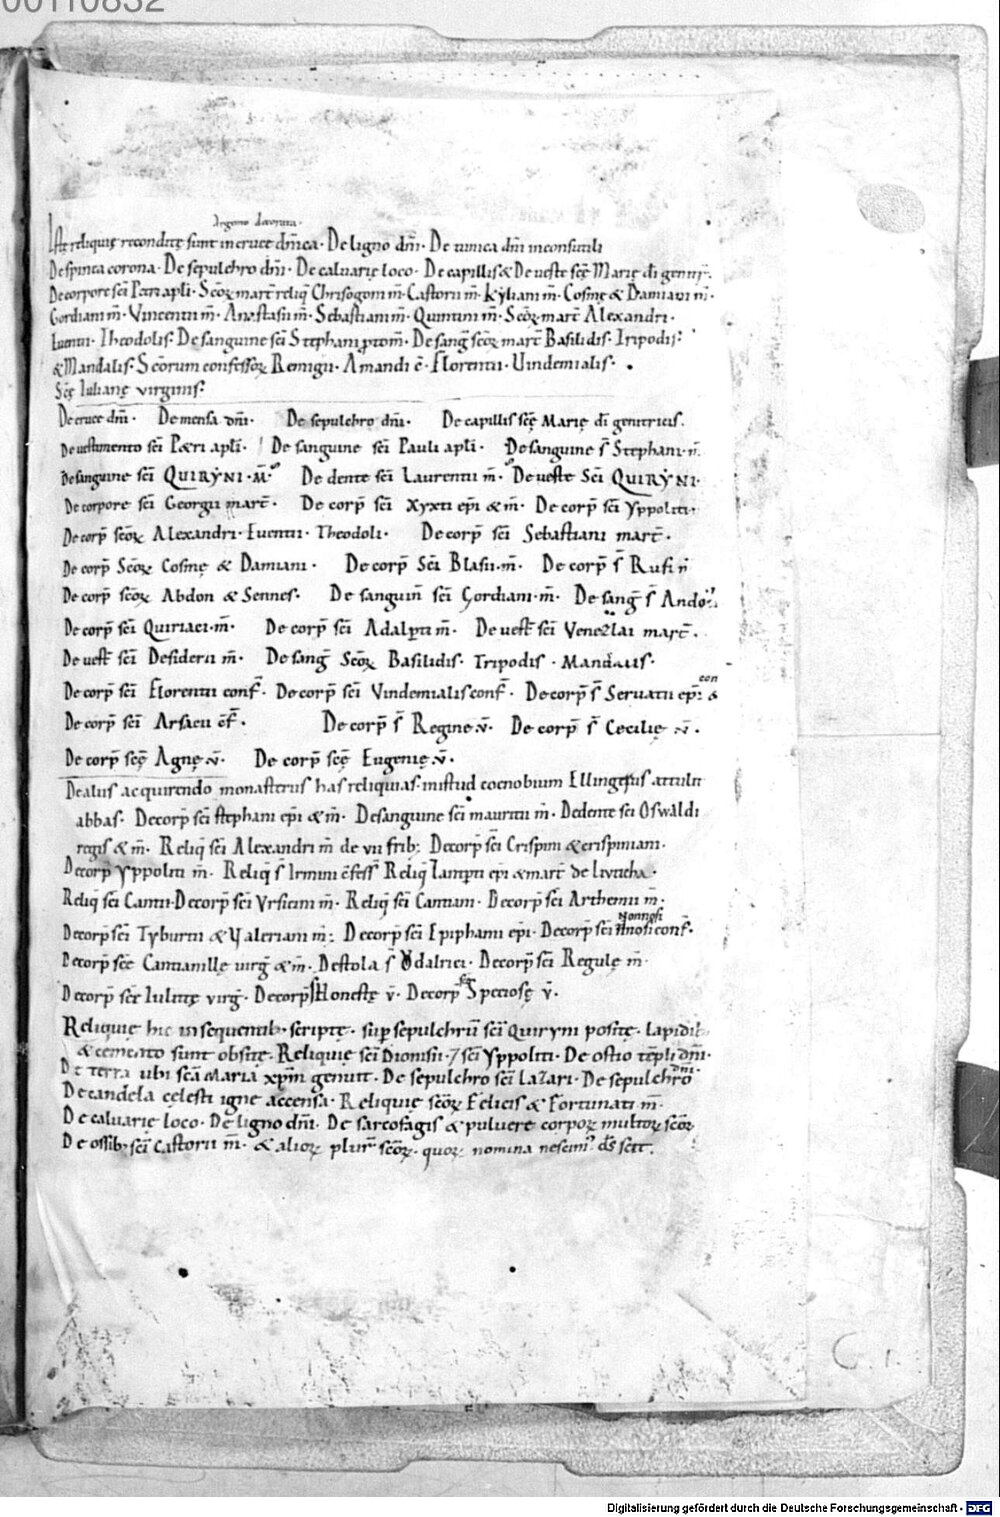 00110832
Argento decorata.
Iste reliquię recondite sunt in cruce dn̄ica · De ligno dn̄i · De tunica dn̄i inconsutili
De spinea corona · De sepulchro dn̄i · De caluarię loco · De capillis & De ueste scę̄ Marię dī genitr̄ ·
De corpore sc̄i Petri apl̄i · Scōꝝ mart̄ reliq̄ Chrisogoni m̄ · Castorii m̄ · Kyliani m̄ · Cosmę & Damiani m̄ ·
Gordiani m̄ · Vincentii m̄ · Anastasii m̄ · Sebastiani m̄ · Quintini m̄ · Scōꝝ mart̄ Alexandri ·
Euentii · Theodolis · De sanguine sc̄i Stephani ꝓtom̄ · De sanḡ scōꝝ mart̄ Basilidis · Tripodis ·
& Mandalis · Scōrum confessoꝝ Remigii · Amandi c̄ · Florentii · Uindemialis ·
Scę̄ Iulianę virginis ·
De cruce dn̄i · De mensa dn̄i · De sepulchro dn̄i · De capillis scę̄ Marię dī genitricis ·
De uestimento sc̄i Petri apl̄i · De sanguine sc̄i Pauli apl̄i · De sanguine s̄ Stephani ·
De sanguine sc̄i QUIRẎNI · M̄ · De dente sc̄i Laurentii m̄ · De ueste Sc̄i QUIRẎNI ·
De corpore sc̄i Georgii mart̄ · De corp̄ sc̄i Xyxti ep̄i & m̄ · De corp̄ sc̄i Yppoliti ·
De corp̄ scōꝝ Alexandri · Euentii · Theodoli · De corp̄ sc̄i Sebastiani mart̄ ·
De corp̄ Scōꝝ Cosmę & Damiani · De corp̄ Sc̄i Blasii · m̄ · De corp̄ s̄ Rufi
De corp̄ scōꝝ Abdon & Sennes · De sanguin̄ sc̄i Gordiani · m̄ · De sanḡ s̄
De corp̄ sc̄i Quiriaci · m̄ · De corp̄ sc̄i Adalꝑti m̄ · De uest̄ sc̄i Venezlai mart̄ ·
De uest̄ sc̄i Desiderii m̄ · De sanḡ Scōꝝ Basilidis · Tripodis · Mandalis ·
De corp̄ sc̄i Florentii conf̄ · De corp̄ sc̄i Vindemialis conf̄ · De corp̄ s̄ Seruatii ep̄i & con
De corp̄ sc̄i Arsacii cf̄ · De corp̄ s̄ Regine v̄ · De corp̄ s̄ Cecilię v̄ ·
De corp̄ scę̄ Agnę v̄ · De corp̄ scę̄ Eugenię v̄ ·
De aliis acquirendo monasteriis has reliquias · in istud coenobium Ellingerus attulit
abbas · De corp̄ sc̄i stephani ep̄i & m̄ · De sanguine sc̄i mauritii m̄ · De dente sc̄i Oswaldi
regis & m̄ · Reliq̄ sc̄i Alexandri m̄ de vii frīb; De corp̄ sc̄i Crispini & crispiniani ·
De corp̄ Yppoliti m̄ · Reliq̄ s̄ Irmini c̄fess̄ Reliq̄ Lantꝑti ep̄i & mart̄ de livticha ·
Reliq̄ sc̄i Cantii · De corp̄ sc̄i Vrsicini m̄ · Reliq̄ sc̄i Cantiani · De corp̄ sc̄i Arthemii m̄ ·
De corp̄ sc̄i Tyburtii & Valeriani m̄ · De corp̄ sc̄i Epiphanii ep̄i · De corp̄ sc̄i Nonnosi conf̄ ·
De corp̄ scę̄ Cantianillę uirḡ & m̄ · De stola s̄ Ŏdalrici · De corp̄ sc̄i Regulę m̄ ·
De corp̄ scę̄ Iulittę virḡ · De corp̄ s̄ Honestę v̄ · De corp̄ scę̄ Speciosę v̄ ·
Reliquię hic in sequentib; scriptę · sup̄ sepulchrū sc̄i Quiryni positę · lapidib;
& cemento sunt obsitę · Reliquię sc̄i Dionisii · ⁊ sc̄i Yppoliti · De ostio tēpli dn̄i ·
De terra ubi scā Maria xp̄m genuit · De sepulchro sc̄i Lazari · De sepulchro dn̄i ·
De candela cęlesti igne accensa · Reliquię scōꝝ Felicis & Fortunati m̄ ·
De caluarię loco · De ligno dn̄i · De sarcofagis & puluere corpoꝝ multoꝝ scōꝝ
De ossib; sc̄i Castorii m̄ · & alioꝝ plurim̄ scōꝝ · quoꝝ nomina nescim; ds̄ scit ·
C. 1.
Digitalisierung gefördert durch die Deutsche Forschungsgemeinschaft - DFG